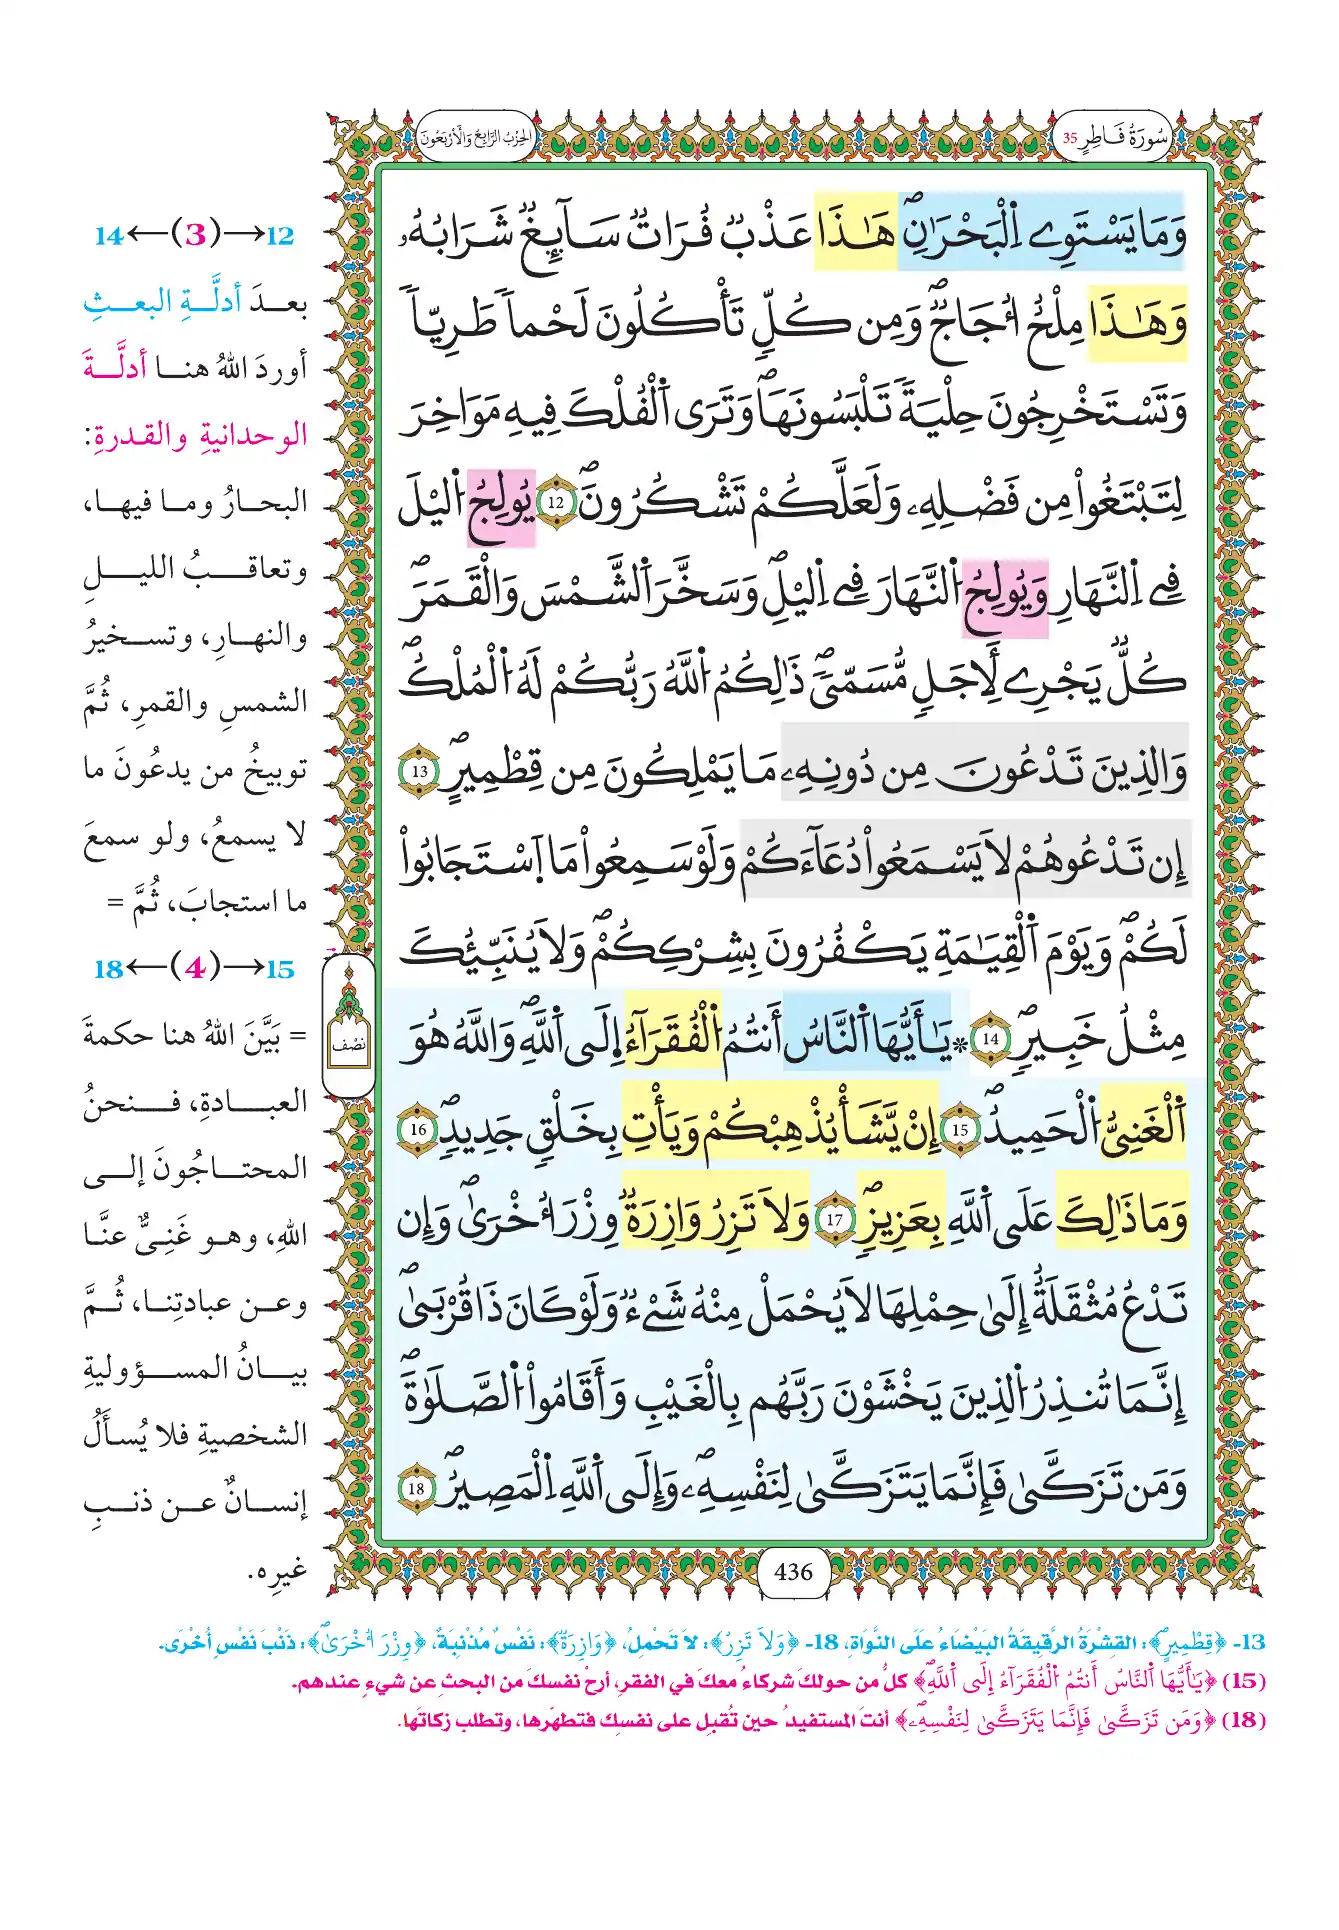 سُورَةُ فَاطِرٍ 35
الحِزْبُ الرَّابِعُ وَالأَرْبَعُونَ
وَمَا يَسْتَوِے اِ۬لْبَحْرَٰنِۖ هَٰذَا عَذْبٞ فُرَاتٞ سَآئِغٞ شَرَابُهُۥ
وَهَٰذَا مِلْحٌ ا۟جَاجٞۖ وَمِن كُلّٖ تَأْكُلُونَ لَحْماٗ طَرِيّاٗ
وَتَسْتَخْرِجُونَ حِلْيَةٗ تَلْبَسُونَهَاۖ وَتَرَى اَ۬لْفُلْكَ فِيهِ مَوَاخِرَ
لِتَبْتَغُواْ مِن فَضْلِهِۦ وَلَعَلَّكُمْ تَشْكُرُونَۖ 12 يُولِجُ اُ۬ليْلَ
فِے اِ۬لنَّهَارِ وَيُولِجُ اُ۬لنَّهَارَ فِے اِ۬ليْلِۖ وَسَخَّرَ اَ۬لشَّمْسَ وَالْقَمَرَۖ
كُلّٞ يَجْرِے لِأَجَلٖ مُّسَمّيٗۖ ذَٰلِكُمُ اُ۬للَّهُ رَبُّكُمْ لَهُ اُ۬لْمُلْكُۖ
وَالذِينَ تَدْعُونَ مِن دُونِهِۦ مَا يَمْلِكُونَ مِن قِطْمِيرٍۖ 13
إِن تَدْعُوهُمْ لَا يَسْمَعُواْ دُعَآءَكُمْ وَلَوْ سَمِعُواْ مَا اَ۪سْتَجَابُواْ
لَكُمْۖ وَيَوْمَ اَ۬لْقِيَٰمَةِ يَكْفُرُونَ بِشِرْكِكُمْۖ وَلَا يُنَبِّئُكَ
مِثْلُ خَبِيرٖۖ 14 ۞ يَٰأَيُّهَا اَ۬لنَّاسُ أَنتُمُ اُ۬لْفُقَرَآءُ اِ۪لَى اَ۬للَّهِۖ وَاللَّهُ هُوَ
اَ۬لْغَنِيُّ اُ۬لْحَمِيدُۖ 15 إِنْ يَّشَأْ يُذْهِبْكُمْ وَيَأْتِ بِخَلْقٖ جَدِيدٖۖ 16
وَمَا ذَٰلِكَ عَلَى اَ۬للَّهِ بِعَزِيزٖۖ 17 وَلَا تَزِرُ وَازِرَةٞ وِزْرَ أُخْرَىٰۖ وَإِن
تَدْعُ مُثْقَلَةٌ إِلَىٰ حِمْلِهَا لَا يُحْمَلْ مِنْهُ شَےْءٞ وَلَوْ كَانَ ذَا قُرْبَىٰۖ
إِنَّمَا تُنذِرُ اُ۬لذِينَ يَخْشَوْنَ رَبَّهُم بِالْغَيْبِ وَأَقَامُواْ اُ۬لصَّلَوٰةَۖ
وَمَن تَزَكَّىٰ فَإِنَّمَا يَتَزَكَّىٰ لِنَفْسِهِۦۖ وَإِلَى اَ۬للَّهِ اِ۬لْمَصِيرُۖ 18
436
نصف
12→(3)←14
بعدَ أدلَّةِ البعثِ
أوردَ اللهُ هنا أدلَّةَ
الوحدانيةِ والقدرةِ:
البحارُ وما فيها،
وتعاقبُ الليلِ
والنهارِ، وتسخيرُ
الشمسِ والقمرِ، ثُمَّ
توبيخُ من يدعُونَ ما
لا يسمعُ، ولو سمعَ
ما استجابَ، ثُمَّ =
15→(4)←18
= بَيَّنَ اللهُ هنا حكمةَ
العبادةِ، فنحنُ
المحتاجُونَ إلى
اللهِ، وهو غَنِيٌّ عنَّا
وعن عبادتِنا، ثُمَّ
بيانُ المسؤوليةِ
الشخصيةِ فلا يُسأَلُ
إنسانٌ عن ذنبِ
غيرِه.
13- ﴿قِطْمِيرٍۖ﴾: القشْرَةُ الرَّقِيقَةُ البَيْضَاءُ عَلَى النَّوَاةِ، 18- ﴿وَلَا تَزِرُ﴾: لا تَحْمِلُ، ﴿وَازِرَةٞ﴾: نَفْسٌ مُذْنِبَةٌ، ﴿وِزْرَ أُخْرَىٰۖ﴾: ذَنْبَ نَفْسٍ أُخْرَى.
(15) ﴿يَٰأَيُّهَا اَ۬لنَّاسُ أَنتُمُ اُ۬لْفُقَرَآءُ اِ۪لَى اَ۬للَّهِۖ﴾ كلُّ من حولكَ شركاءُ معكَ في الفقرِ، أرحْ نفسكَ من البحثِ عن شيءٍ عندهم.
(18) ﴿وَمَن تَزَكَّىٰ فَإِنَّمَا يَتَزَكَّىٰ لِنَفْسِهِۦۖ﴾ أنتَ المستفيدُ حين تُقبِل على نفسِك فتطهّرها، وتطلب زكاتَها.